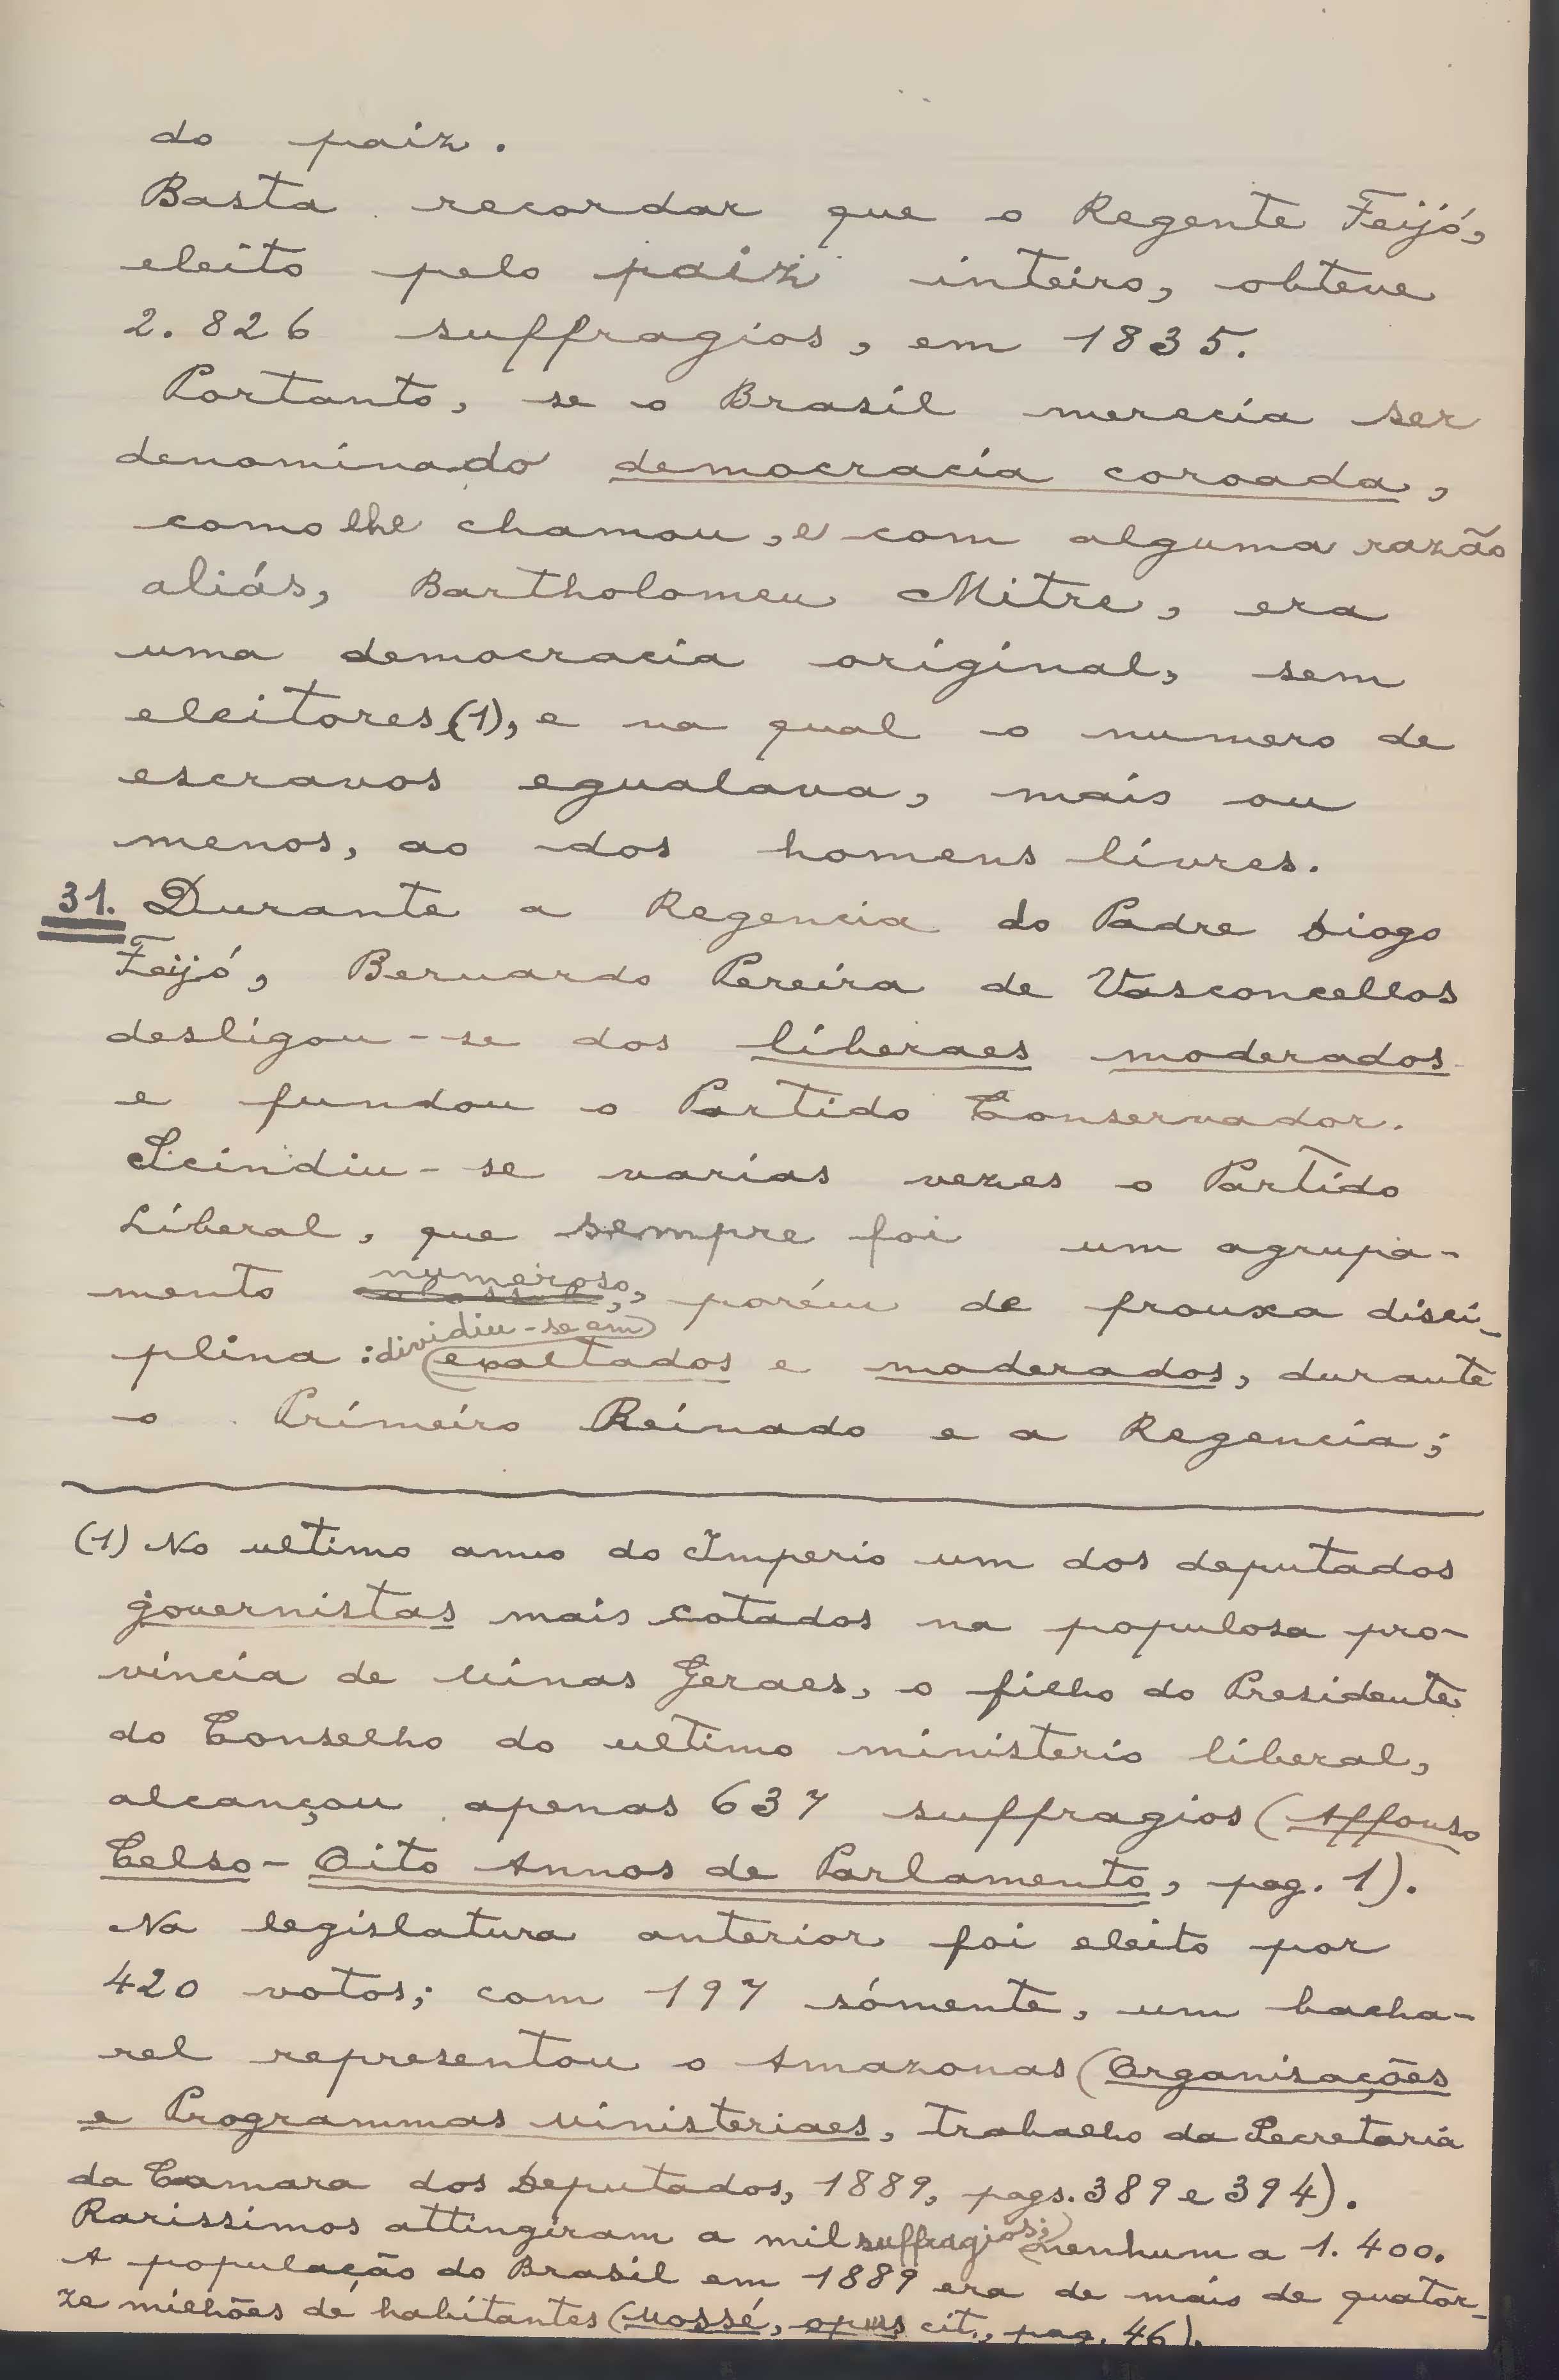 do paiz.
Basta recordar que o Regente Feijó,
eleito pelo paiz inteiro, obteve
2.826 suffragios, em 1835.
Portanto, se o Brasil merecia ser
denominado democracia coroada,
como lhe chamou, e com alguma razão
aliás, Bartholomeu Mitre, era
uma democracia original, sem
eleitores(1), e na qual o numero de
escravos egualava, mais ou
menos, ao dos homens livres.
31. Durante a Regencia do Padre Diogo
Feijó, Bernardo Pereira de Vasconcellos
desligou-se dos liberaes moderados
e fundou o Partido Conservador.
Scindiu-se varias vezes o Partido
Liberal, que sempre foi um agrupa-
mento numeroso, porém de frouxa disci-
plina: dividiu-se em exaltados e moderados, durante
o Primeiro Reinado e a Regencia;
(1) No ultimo anno do Imperio um dos deputados
governistas mais cotados na populosa pro-
vincia de Minas Geraes, o filho do Presidente
do Conselho do ultimo ministerio liberal,
alcançou apenas 637 suffragios (Affonso
Celso - Oito Annos de Parlamento, pag. 1).
Na legislatura anterior foi eleito por
420 votos; com 197 sómente, um bacha-
rel representou o Amazonas (Organisações
e Programmas Ministeriaes, trabalho da Secretaria
da Camara dos Deputados, 1889, pags. 389 e 394).
Rarissimos attingiram a mil suffragios; nenhum a 1.400.
A população do Brasil em 1889 era de mais de quator-
ze milhões de habitantes (Mossé, opus cit., pag. 46).